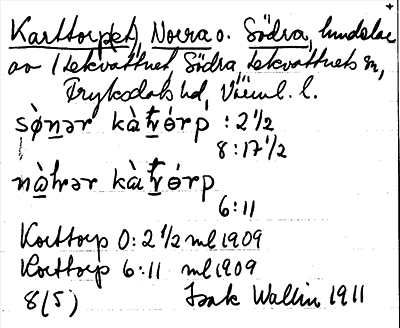 Karttorp(et), Norra o. Södra, hundelar
av Lekvattnet Södra Lekvattnets sn,
Fryksdals hd, Värml. l.
sø̀nər kàtórp : 2 1/2
8:17 1/2
nàhrər kàtórp
6:11
Korttorp 0:2 1/2 ml 1909
Korttorp 6:11 ml 1909
8(5) Isak Wallin 1911